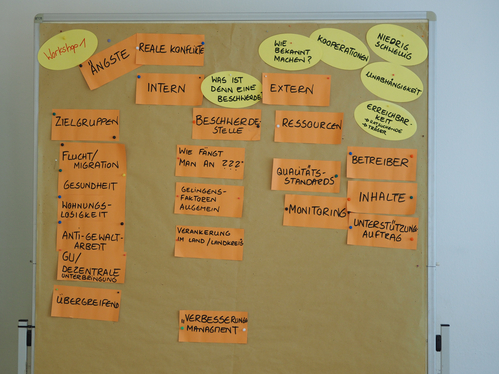 Workshop 1
ÄNGSTE
REALE KONFLIKTE
WIE
BEKANNT
MACHEN?
KOOPERATIONEN
NIEDRIG
SCHWELLIG
UNABHÄNGIGKEIT
INTERN
WAS IST
DENN EINE
BESCHWERDE
EXTERN
ERREICHBAR-
KEIT
→ TRÄGER
ZIELGRUPPEN
BESCHWERDE-
STELLE
RESSOURCEN
FLUCHT/
MIGRATION
GESUNDHEIT
WOHNUNGS-
LOSIGKEIT
ANTI-GEWALT-
ARBEIT
GU/
DEZENTRALE
UNTERBRINGUNG
ÜBERGREIFEND
WIE FÄNGT
"MAN AN ???"
GELINGENS-
FAKTOREN
ALLGEMEIN
VERANKERUNG
IM LAND/LANDKREIS
VERBESSERUNG
MANAGMENT
QUALITÄTS-
STANDARDS
MONITORING
BETREIBER
INHALTE
UNTERSTÜTZUNG
AUFTRAG